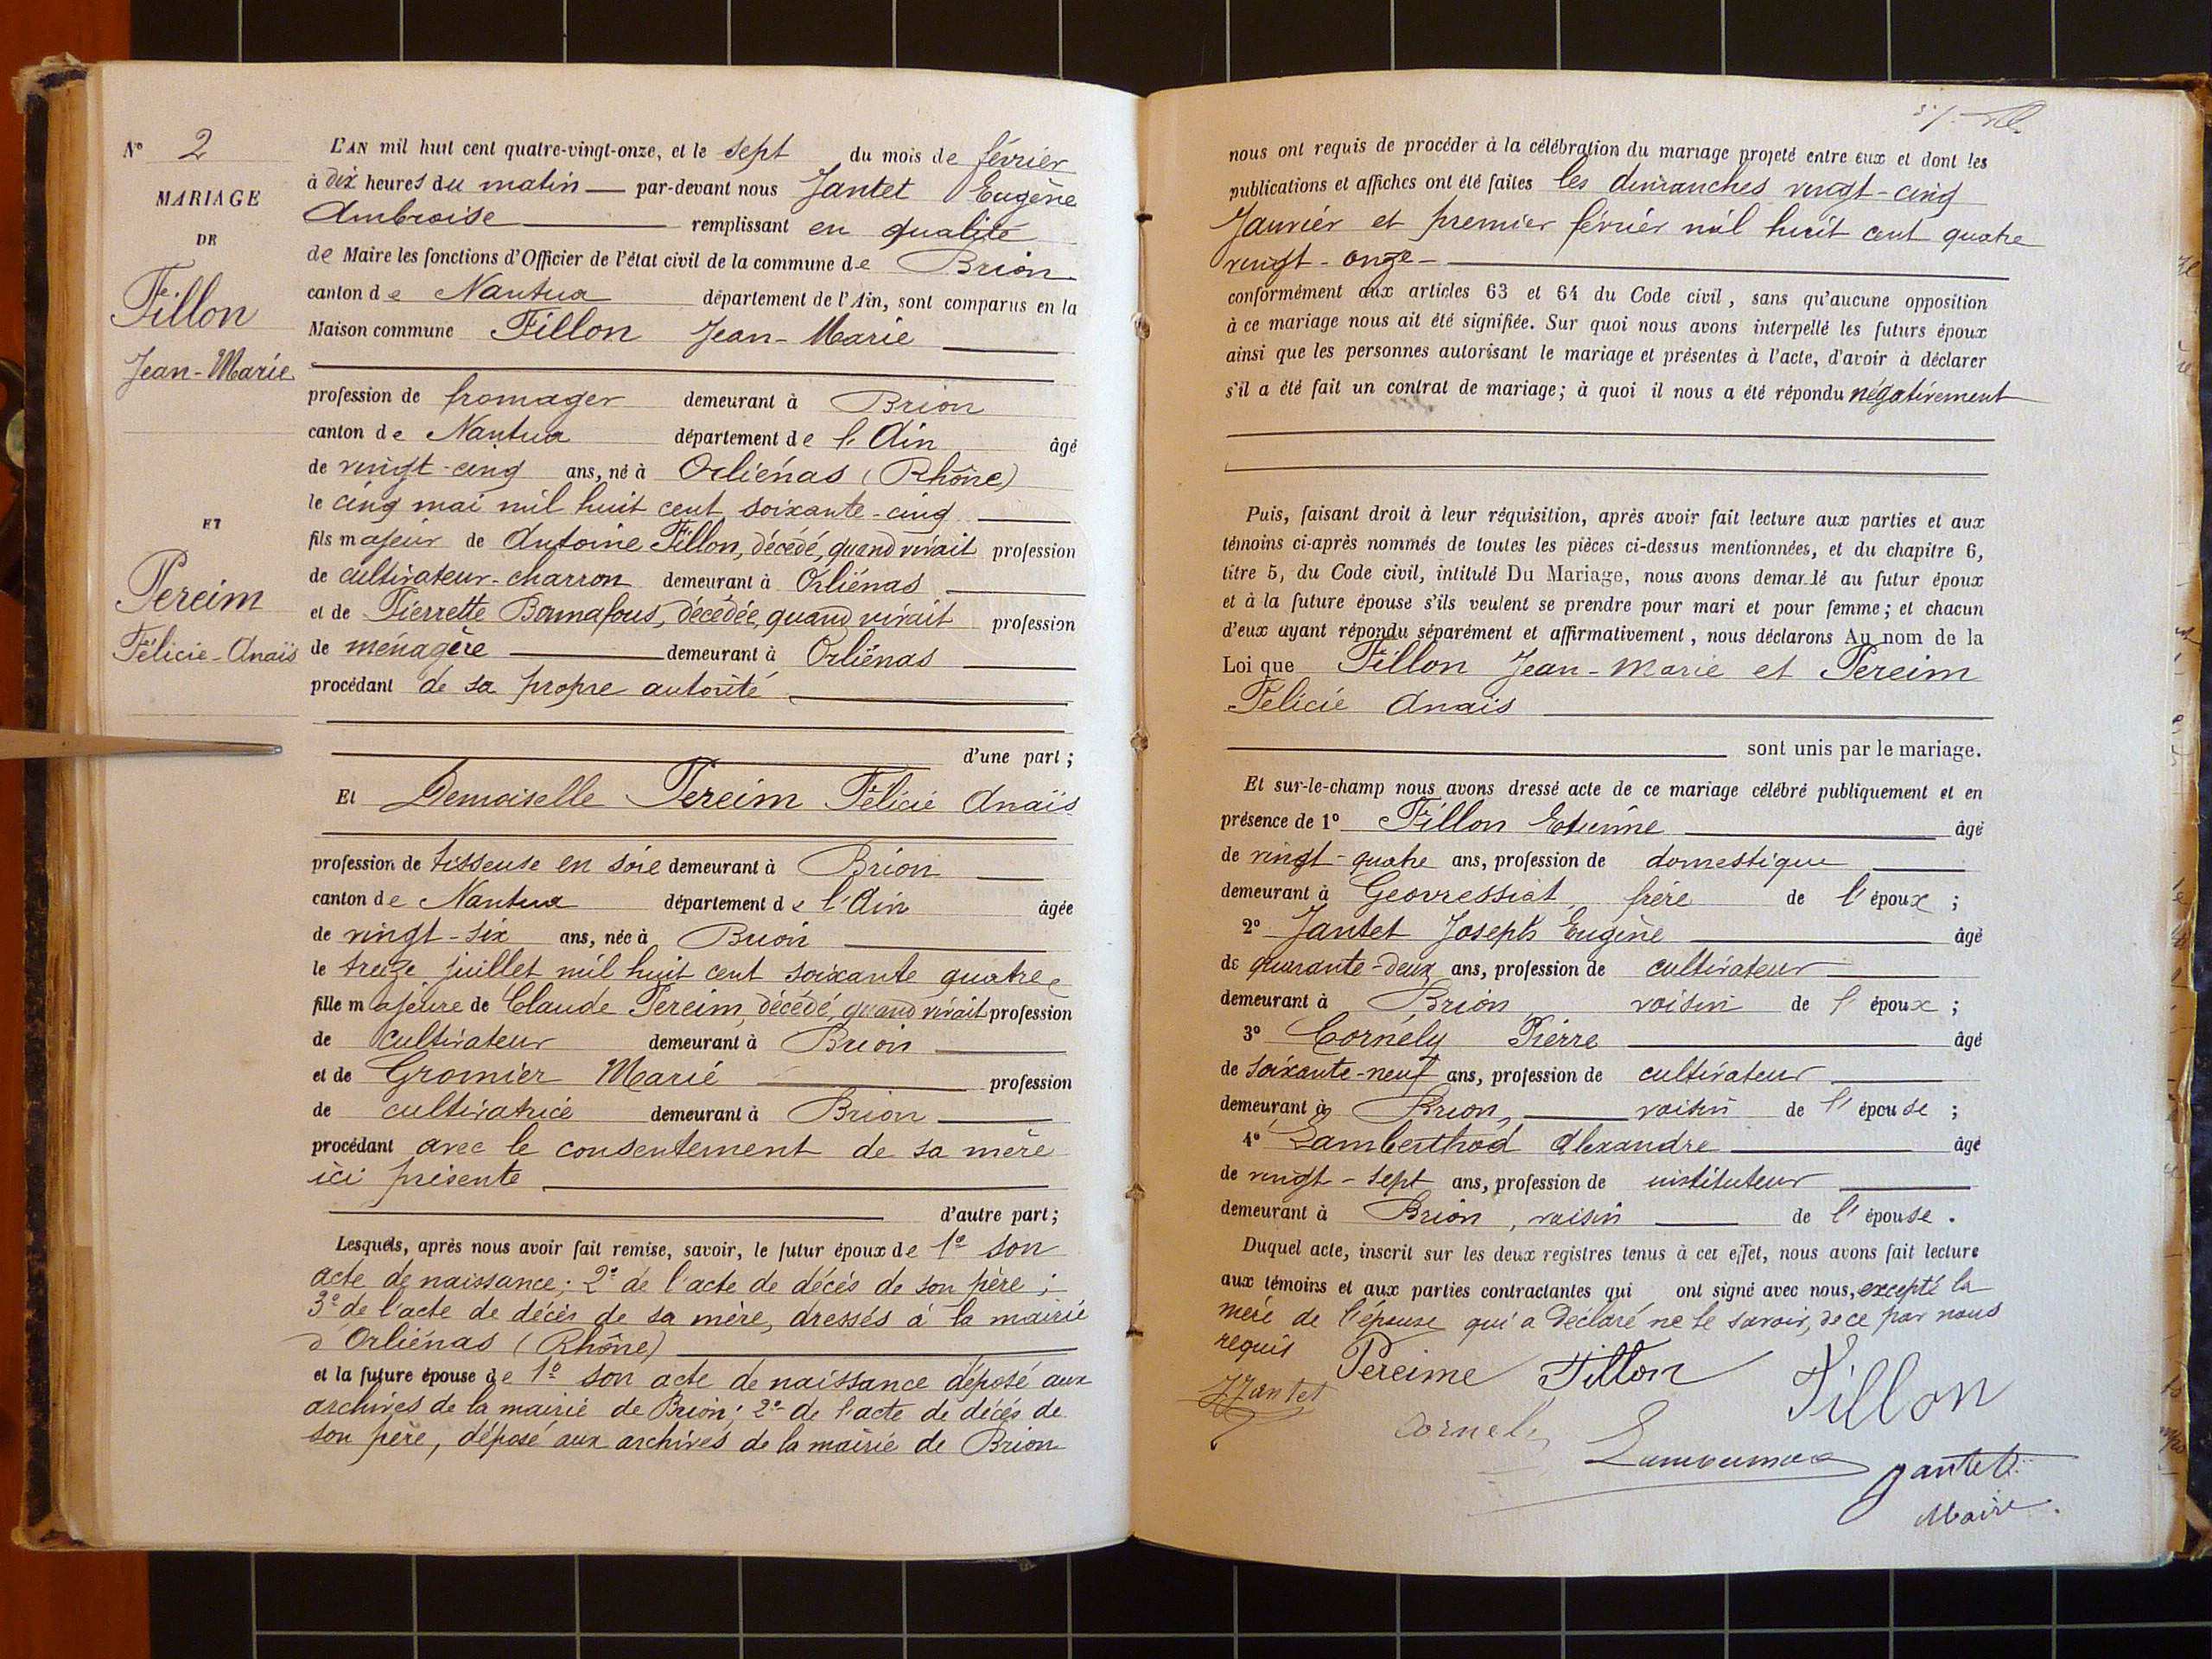 N° 2
MARIAGE
DE
Fillon
Jean-Marie
ET
Pereim
Félicie-Anaïs
L'AN mil huit cent quatre-vingt-onze, et le sept du mois de février
à dix heures du matin — par-devant nous Jantet Eugène
Ambroise remplissant en qualité
de Maire les fonctions d'Officier de l'état civil de la commune de Brion
canton de Nantua département de l'Ain, sont comparus en la
Maison commune Fillon Jean-Marie
profession de fromager demeurant à Brion
canton de Nantua département de l'Ain âgé
de vingt-cinq ans, né à Orliénas (Rhône)
le cinq mai mil huit cent soixante-cinq
fils majeur de Antoine Fillon, décédé, quand vivait profession
de cultivateur-charron demeurant à Orliénas
et de Pierrette Bonnafous, décédée, quand vivait profession
de ménagère demeurant à Orliénas
procédant de sa propre autorité
d'une part ;
Et Demoiselle Pereim Félicie Anaïs
profession de tisseuse en soie demeurant à Brion
canton de Nantua département de l'Ain âgée
de vingt-six ans, née à Brion
le treize juillet mil huit cent soixante quatre
fille majeure de Claude Pereim, décédé, quand vivait profession
de cultivateur demeurant à Brion
et de Gromier Marie profession
de cultivatrice demeurant à Brion
procédant avec le consentement de sa mère
ici présente
d'autre part ;
Lesquels, après nous avoir fait remise, savoir, le futur époux de 1° son
acte de naissance ; 2° de l'acte de décès de son père ;
3° de l'acte de décès de sa mère, dressés à la mairie
d'Orliénas (Rhône)
et la future épouse de 1° son acte de naissance déposé aux
archives de la mairie de Brion ; 2° de l'acte de décès de
son père, déposé aux archives de la mairie de Brion
nous ont requis de procéder à la célébration du mariage projeté entre eux et dont les
publications et affiches ont été faites les dimanches vingt-cinq
Janvier et premier février mil huit cent quatre
vingt-onze-
conformément aux articles 63 et 64 du Code civil, sans qu'aucune opposition
à ce mariage nous ait été signifiée. Sur quoi nous avons interpellé les futurs époux
ainsi que les personnes autorisant le mariage et présentes à l'acte, d'avoir à déclarer
s'il a été fait un contrat de mariage ; à quoi il nous a été répondu négativement
Puis, faisant droit à leur réquisition, après avoir fait lecture aux parties et aux
témoins ci-après nommés de toutes les pièces ci-dessus mentionnées, et du chapitre 6,
titre 5, du Code civil, intitulé Du Mariage, nous avons demandé au futur époux
et à la future épouse s'ils veulent se prendre pour mari et pour femme ; et chacun
d'eux ayant répondu séparément et affirmativement, nous déclarons Au nom de la
Loi que Fillon Jean-Marie et Pereim
Félicie Anaïs
sont unis par le mariage.
Et sur-le-champ nous avons dressé acte de ce mariage célébré publiquement et en
présence de 1° Fillon Etienne âgé
de vingt-quatre ans, profession de domestique
demeurant à Geovressiat frère de l'époux ;
2° Jantet Joseph Eugène âgé
de quarante-deux ans, profession de cultivateur
demeurant à Brion voisin de l'époux ;
3° Cornély Pierre âgé
de soixante-neuf ans, profession de cultivateur
demeurant à Brion, voisin de l'épouse ;
4° Lamberthod Alexandre âgé
de vingt-sept ans, profession de instituteur
demeurant à Brion, voisin de l'épouse.
Duquel acte, inscrit sur les deux registres tenus à cet effet, nous avons fait lecture
aux témoins et aux parties contractantes qui ont signé avec nous, excepté la
mère de l'épouse qui a déclaré ne le savoir, de ce par nous
requis
Pereime Fillon Fillon
Jantet
Cornely
Jantet
Maire.